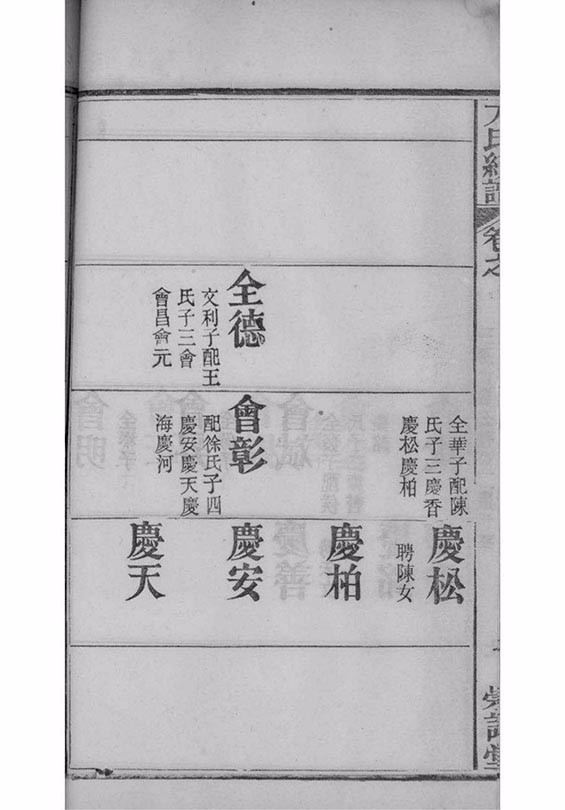 卷之
全德
文利子配王
氏子三會
會昌會元
全華子配陳
氏子三慶香
慶松慶柏
會彰
配徐氏子四
慶安慶天慶
海慶河
慶松
聘陳女
慶柏
慶安
慶天